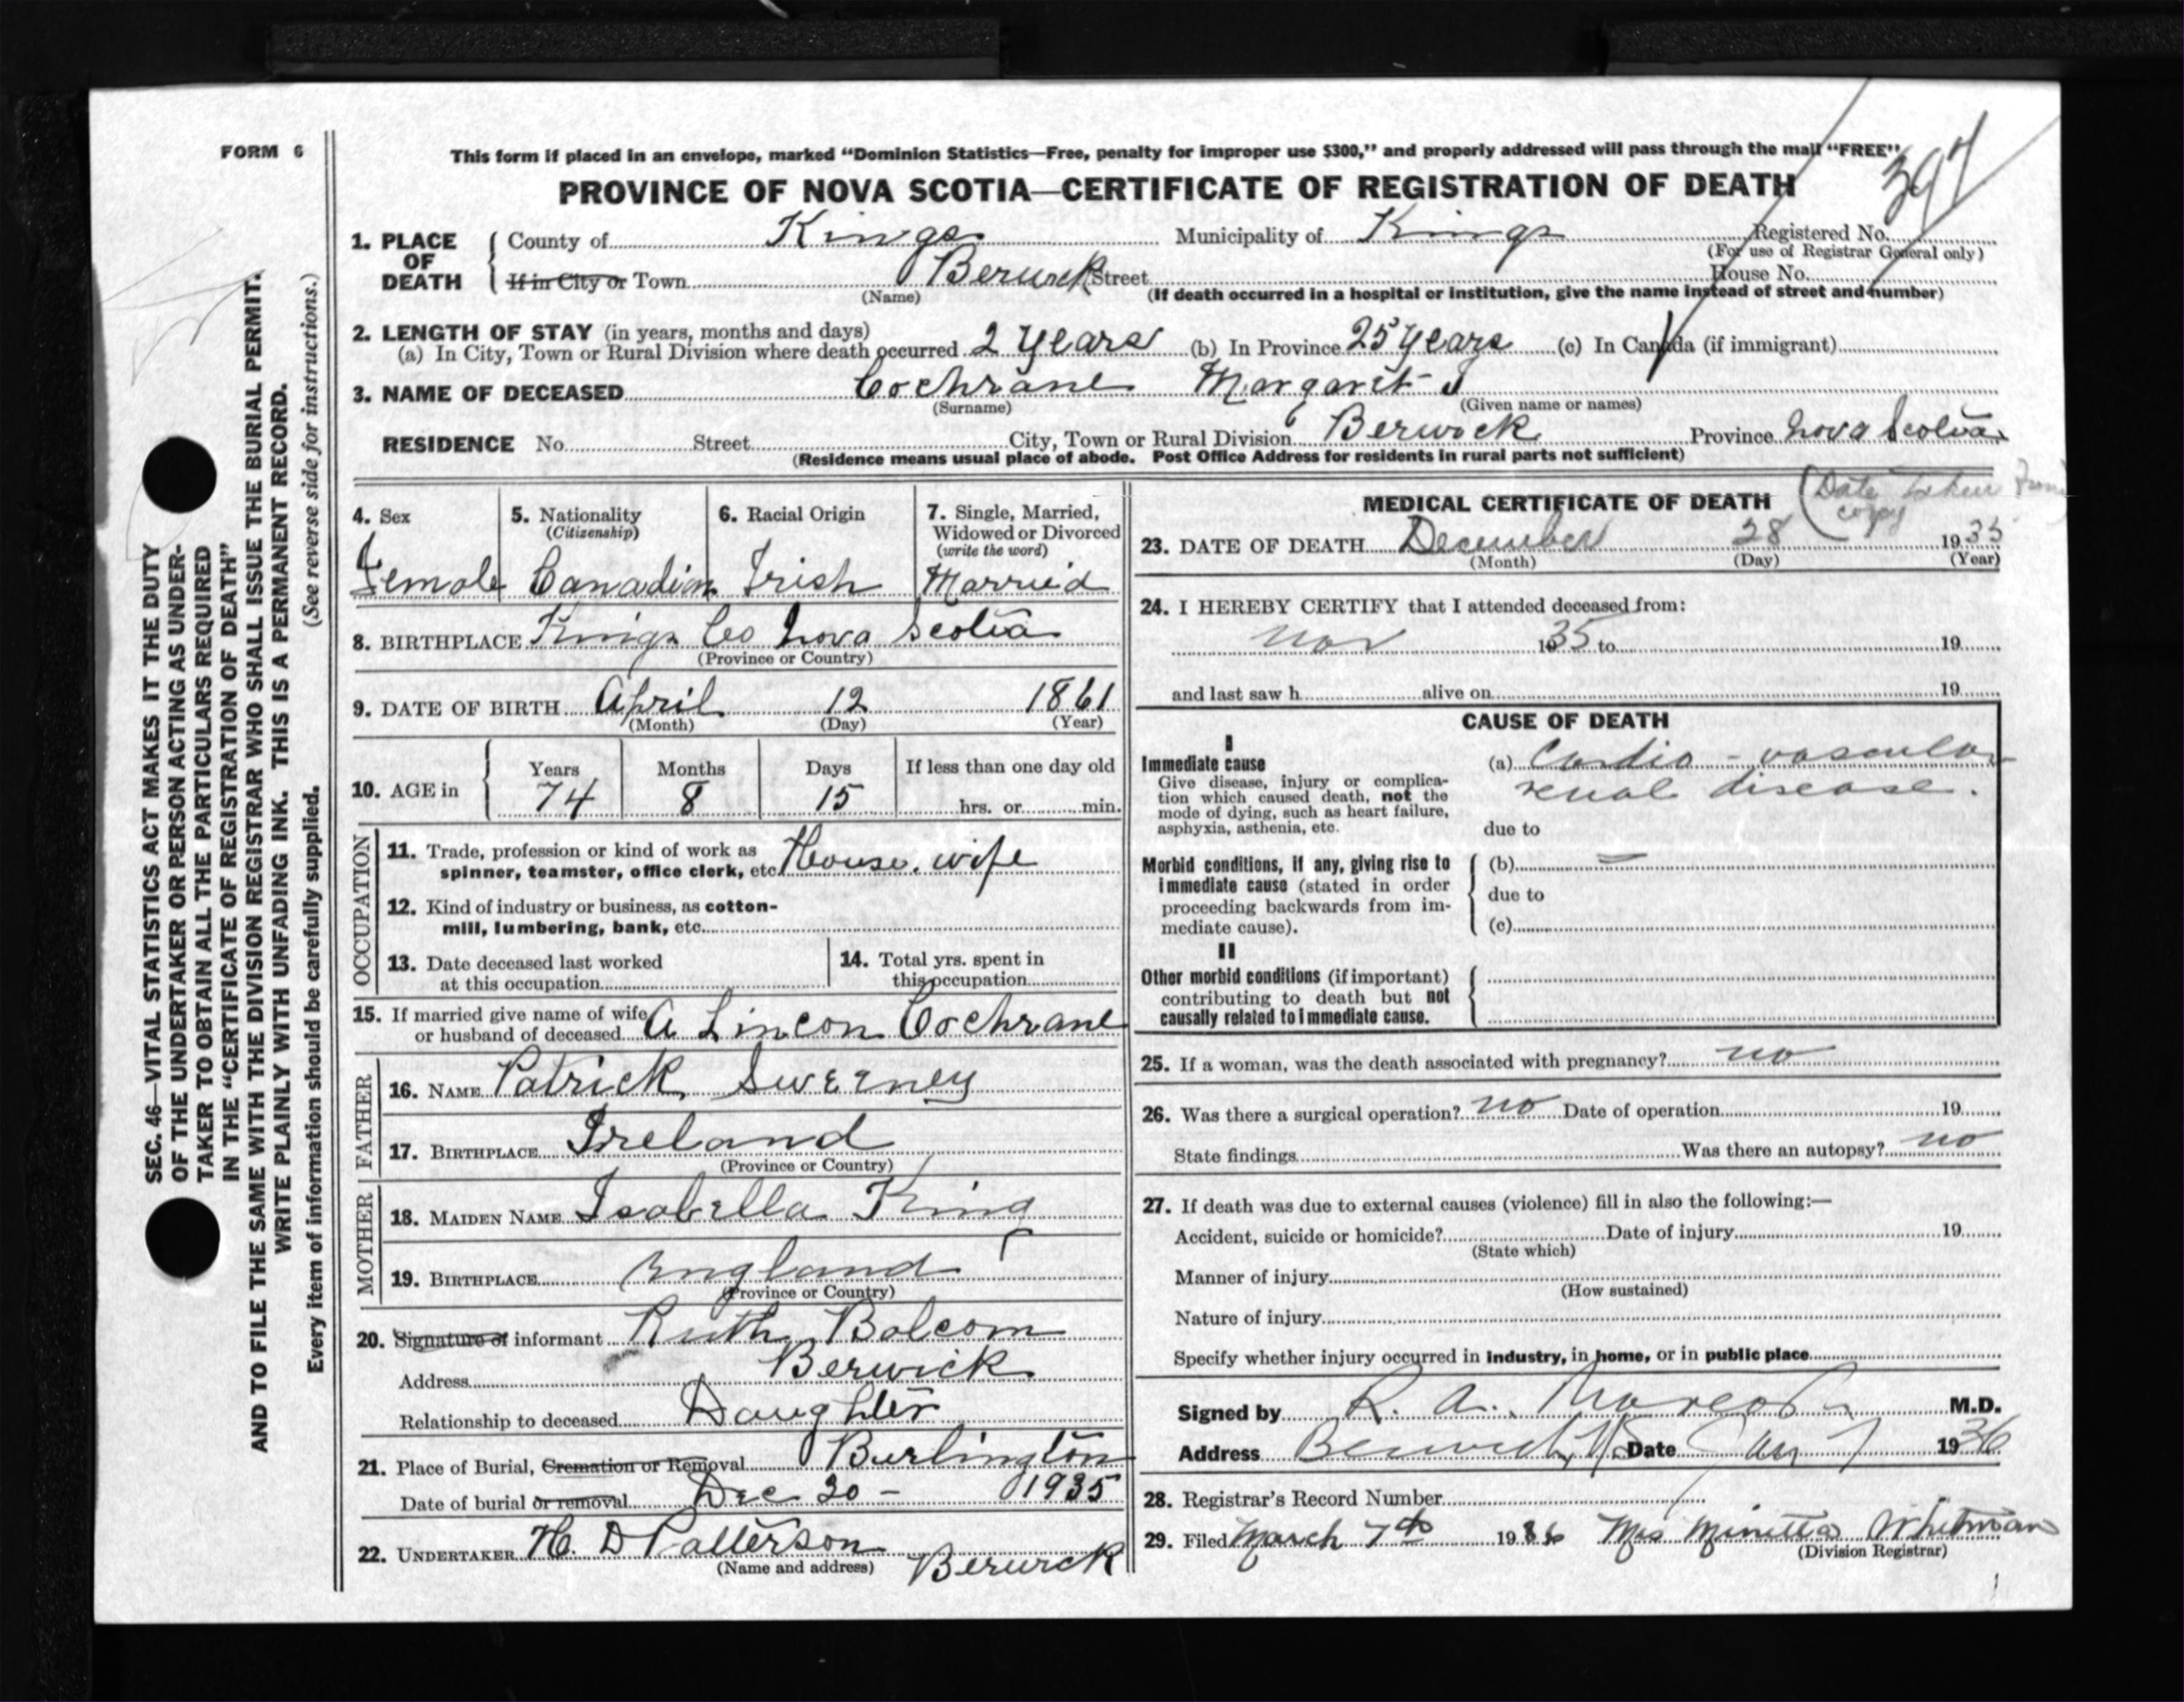 FORM 6
This form if placed in an envelope, marked “Dominion Statistics—Free, penalty for improper use $300,” and properly addressed will pass through the mail “FREE”
397
PROVINCE OF NOVA SCOTIA—CERTIFICATE OF REGISTRATION OF DEATH
1. PLACE OF DEATH County of Kings Municipality of Kings Registered No.
(For use of Registrar General only)
If in City or Town Berwick Street House No.
(Name) (If death occurred in a hospital or institution, give the name instead of street and number)
2. LENGTH OF STAY (in years, months and days)
(a) In City, Town or Rural Division where death occurred 2 years (b) In Province 25 years (c) In Canada (if immigrant)
3. NAME OF DECEASED Cochrane Margaret J
(Surname) (Given name or names)
RESIDENCE No. Street City, Town or Rural Division Berwick Province Nova Scotia
(Residence means usual place of abode. Post Office Address for residents in rural parts not sufficient)
4. Sex 5. Nationality (Citizenship) 6. Racial Origin 7. Single, Married, Widowed or Divorced (write the word)
Female Canadian Irish Married
8. BIRTHPLACE Kings Co Nova Scotia
(Province or Country)
9. DATE OF BIRTH April 12 1861
(Month) (Day) (Year)
10. AGE in Years Months Days If less than one day old
74 8 15 hrs. or min.
OCCUPATION
11. Trade, profession or kind of work as
spinner, teamster, office clerk, etc. House. wife
12. Kind of industry or business, as cotton-
mill, lumbering, bank, etc.
13. Date deceased last worked
at this occupation
14. Total yrs. spent in
this occupation
15. If married give name of wife
or husband of deceased A Lincon Cochrane
FATHER
16. NAME Patrick Sweeney
17. BIRTHPLACE Ireland
(Province or Country)
MOTHER
18. MAIDEN NAME Isabella King
19. BIRTHPLACE England
(Province or Country)
20. Signature of informant Ruth Bolcom
Address Berwick
Relationship to deceased Daughter
21. Place of Burial, Cremation or Removal Burlington
Date of burial or removal Dec 30 - 1935
22. UNDERTAKER H. D Patterson Berwick
(Name and address)
MEDICAL CERTIFICATE OF DEATH (Date taken from copy
23. DATE OF DEATH December 28 1935
(Month) (Day) (Year)
24. I HEREBY CERTIFY that I attended deceased from:
Nov 1935 to 19
and last saw h alive on 19
CAUSE OF DEATH
I
Immediate cause
Give disease, injury or complica-
tion which caused death, not the
mode of dying, such as heart failure,
asphyxia, asthenia, etc.
(a) Cardio - vascular
renal disease.
due to
Morbid conditions, if any, giving rise to
immediate cause (stated in order
proceeding backwards from im-
mediate cause).
(b) —
due to
(c)
II
Other morbid conditions (if important)
contributing to death but not
causally related to immediate cause.
25. If a woman, was the death associated with pregnancy? no
26. Was there a surgical operation? no Date of operation 19
State findings Was there an autopsy? no
27. If death was due to external causes (violence) fill in also the following:—
Accident, suicide or homicide? Date of injury 19
(State which)
Manner of injury
(How sustained)
Nature of injury
Specify whether injury occurred in industry, in home, or in public place
Signed by R. A. M.D.
Address Berwick, N.S. Date Jan 7 1936
28. Registrar's Record Number
29. Filed March 7th 1936 Mrs Minetta Whitman
(Division Registrar)
SEC. 46—VITAL STATISTICS ACT MAKES IT THE DUTY
OF THE UNDERTAKER OR PERSON ACTING AS UNDER-
TAKER TO OBTAIN ALL THE PARTICULARS REQUIRED
IN THE “CERTIFICATE OF REGISTRATION OF DEATH”
AND TO FILE THE SAME WITH THE DIVISION REGISTRAR WHO SHALL ISSUE THE BURIAL PERMIT.
WRITE PLAINLY WITH UNFADING INK. THIS IS A PERMANENT RECORD.
Every item of information should be carefully supplied. (See reverse side for instructions.)